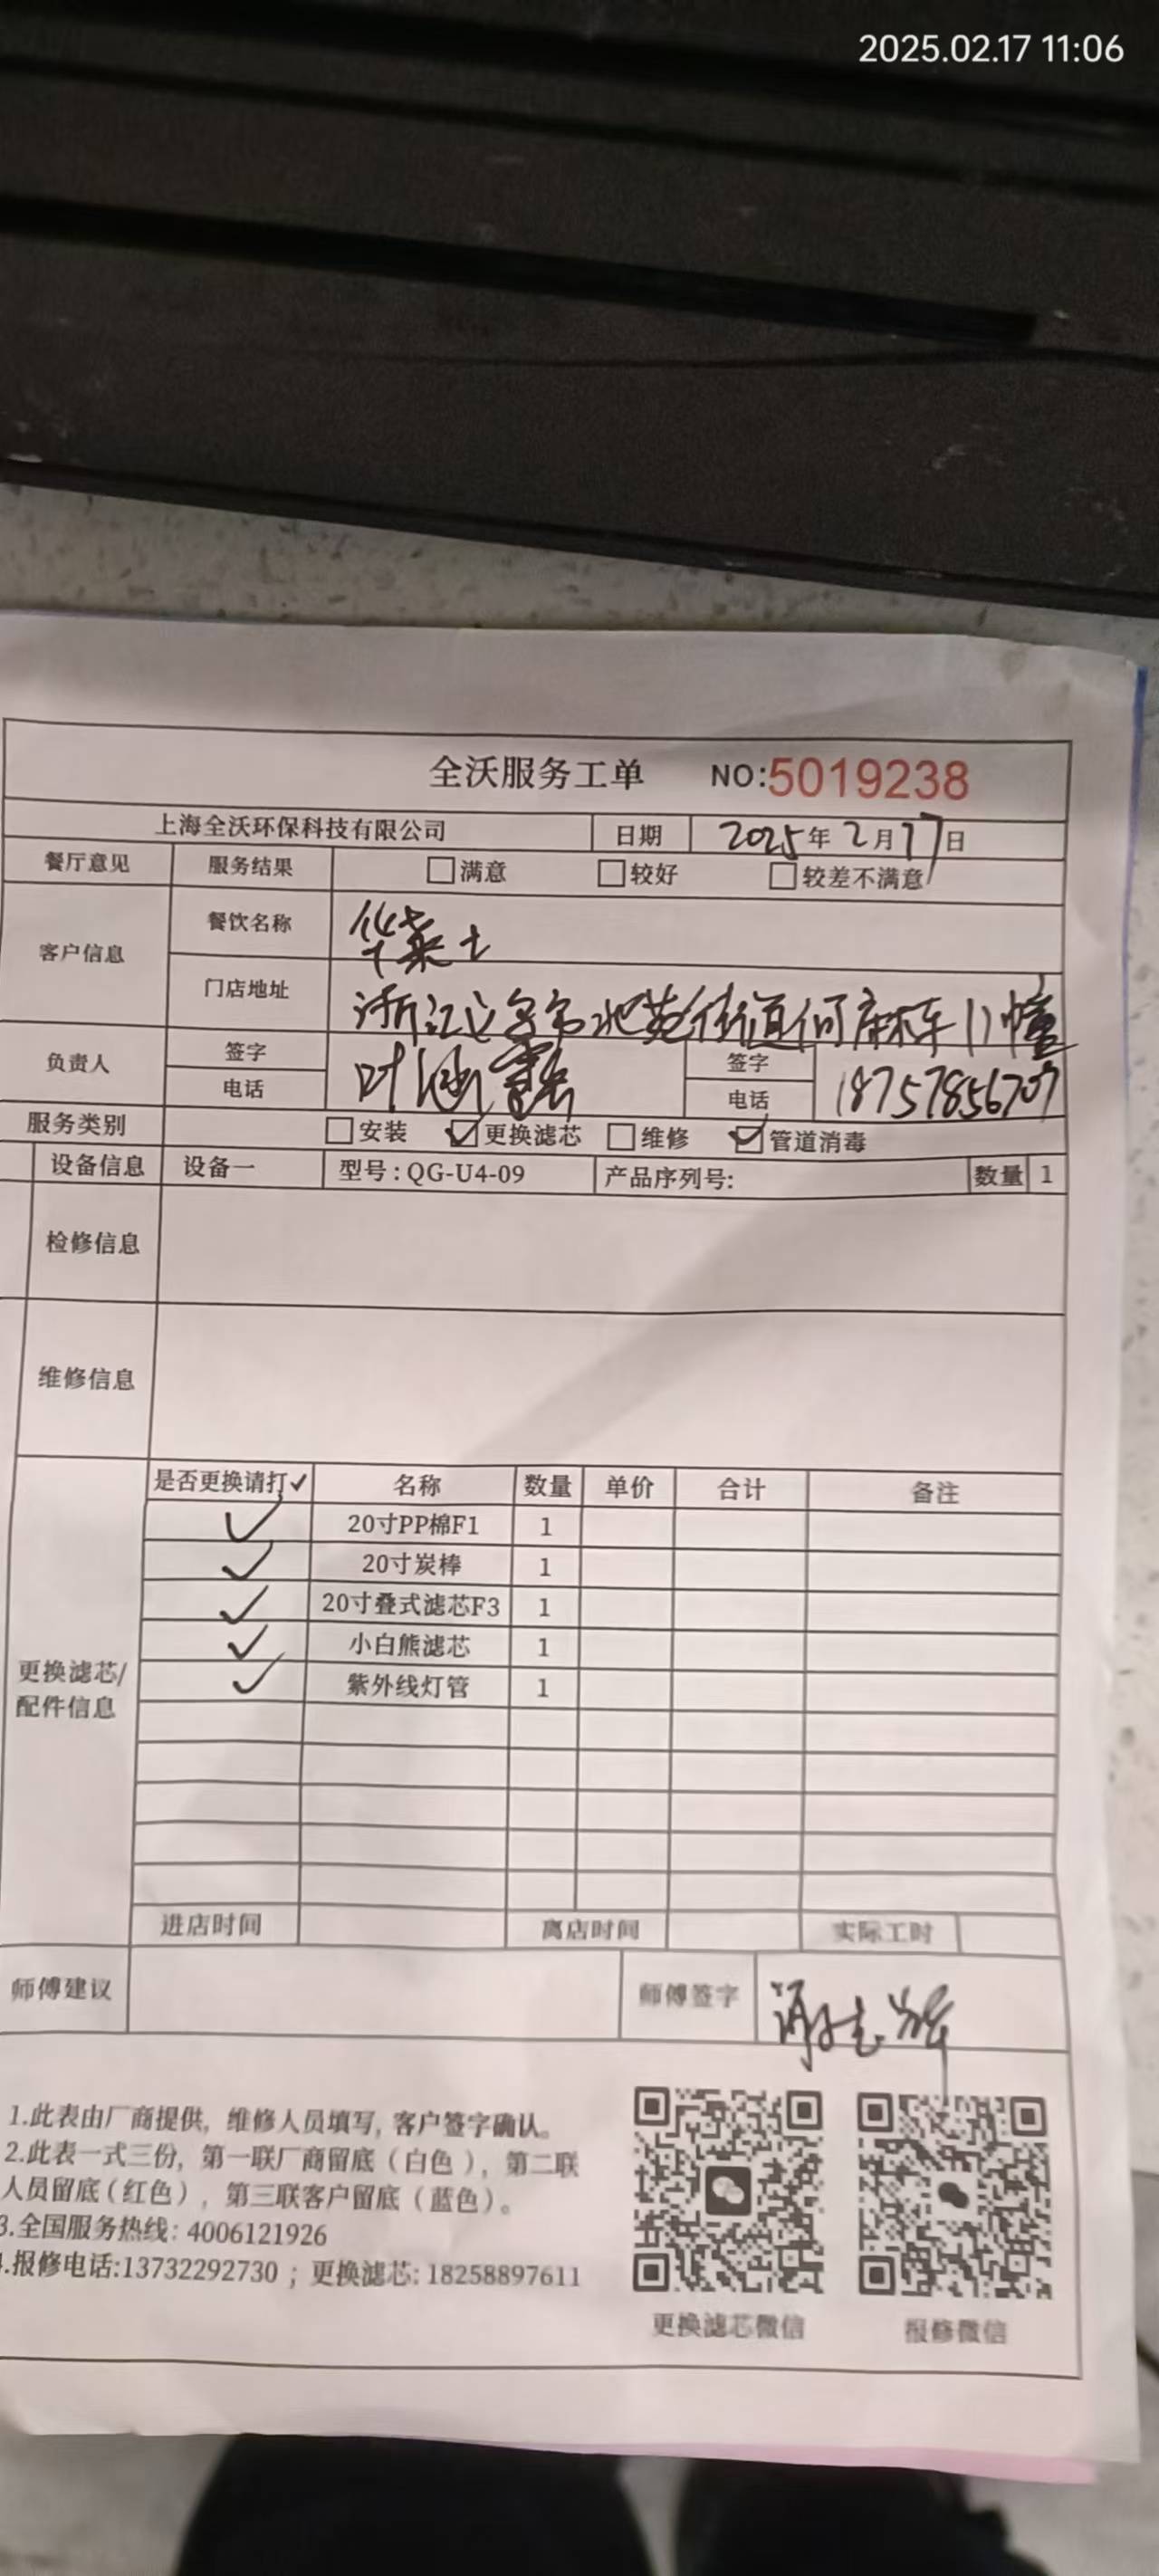 2025.02.17 11:06
全沃服务工单 NO:5019238
上海全沃环保科技有限公司 日期 2025年2月17日
餐厅意见 服务结果 满意 较好 较差不满意
客户信息 餐饮名称 华莱士
门店地址 浙江义乌市北苑街道何麻车11幢
负责人 签字 叶 签字
电话 电话 18757856707
服务类别 安装 ✓更换滤芯 维修 ✓管道消毒
设备信息 设备一 型号:QG-U4-09 产品序列号: 数量 1
检修信息
维修信息
更换滤芯/配件信息
是否更换请打✓ 名称 数量 单价 合计 备注
✓ 20寸PP棉F1 1
✓ 20寸炭棒 1
✓ 20寸叠式滤芯F3 1
✓ 小白熊滤芯 1
✓ 紫外线灯管 1
进店时间 离店时间 实际工时
师傅建议 师傅签字 谢志
1.此表由厂商提供, 维修人员填写, 客户签字确认。
2.此表一式三份, 第一联厂商留底(白色), 第二联
人员留底(红色), 第三联客户留底(蓝色)。
3.全国服务热线: 4006121926
.报修电话:13732292730 ; 更换滤芯: 18258897611
更换滤芯微信 报修微信